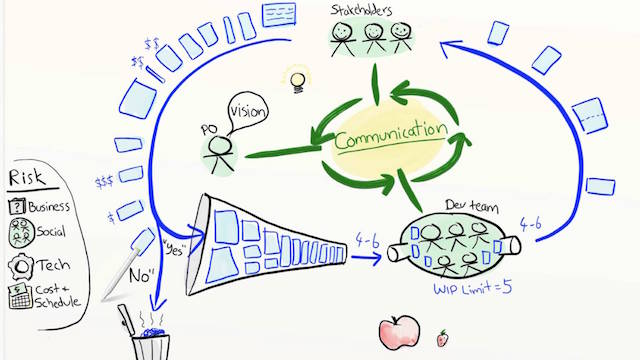 Stakeholders
$$
$$
vision
PO
Communication
$$$
$
Risk
?
Business
Social
Tech
Cost +
Schedule
$
"Yes"
"No"
4-6
Dev team
4-6
WIP Limit = 5